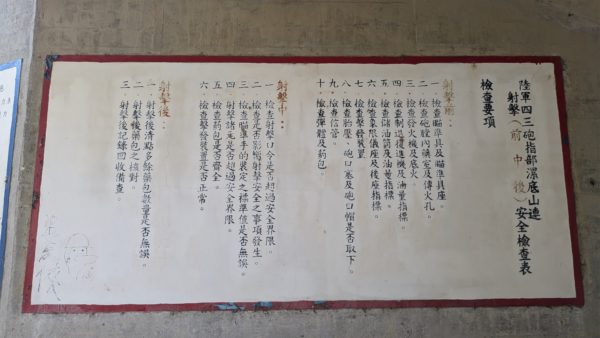 陸軍四三砲指部漯底山連
射擊（前、中、後）安全檢查表
檢查要項
射擊前：
一．檢查瞄準具及瞄準具座。
二．檢查砲膛內藥室及傳火孔。
三．檢查發火機及底火。
四．檢查制退復進機及油量指標。
五．檢查儲油筒及油量指標。
六．檢查象限儀座及後座指標。
七．檢查擊發裝置。
八．檢查胎壓、砲口塞及砲口帽是否取下。
九．檢查信管。
十．檢查彈體及葯包。
射擊中：
一．檢查射擊口令是否超過安全界限。
二．檢查是否影響射擊安全之事項發生。
三．檢查瞄準手的裝定之標準值是否無誤。
四．射擊諸元是否超過安全界限。
五．檢查葯包是否齊全。
六．檢查擊發裝置是否正常。
射擊後：
一．射擊後清點多餘葯包數量是否無誤。
二．射擊後藥包之核對。
三．射擊後記錄回收備查。